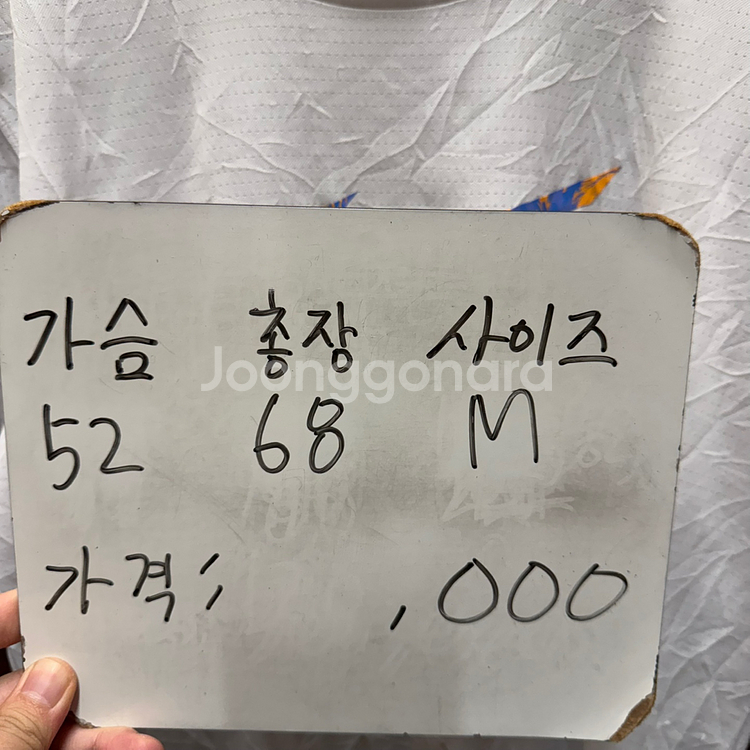 가슴 총장 사이즈
Joonggonara
52 68 M
가격: ,000